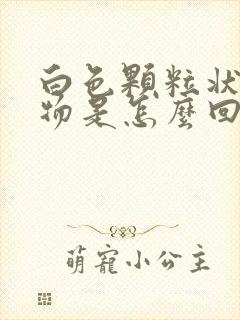 白色顆粒狀
物是怎麼回
萌寵小公主